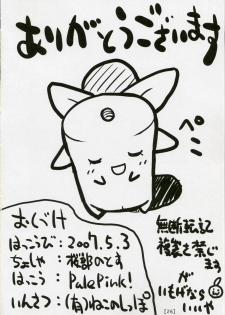 ありがとうございます
ペこ
おくづけ
はっこうび：2007.5.3
ちょしゃ：桜都のとす
はっこう：PalePink!
いんさつ：(有)ねこのしっぽ
無断転記
複製を禁じ
ます
が
いいや
[26]